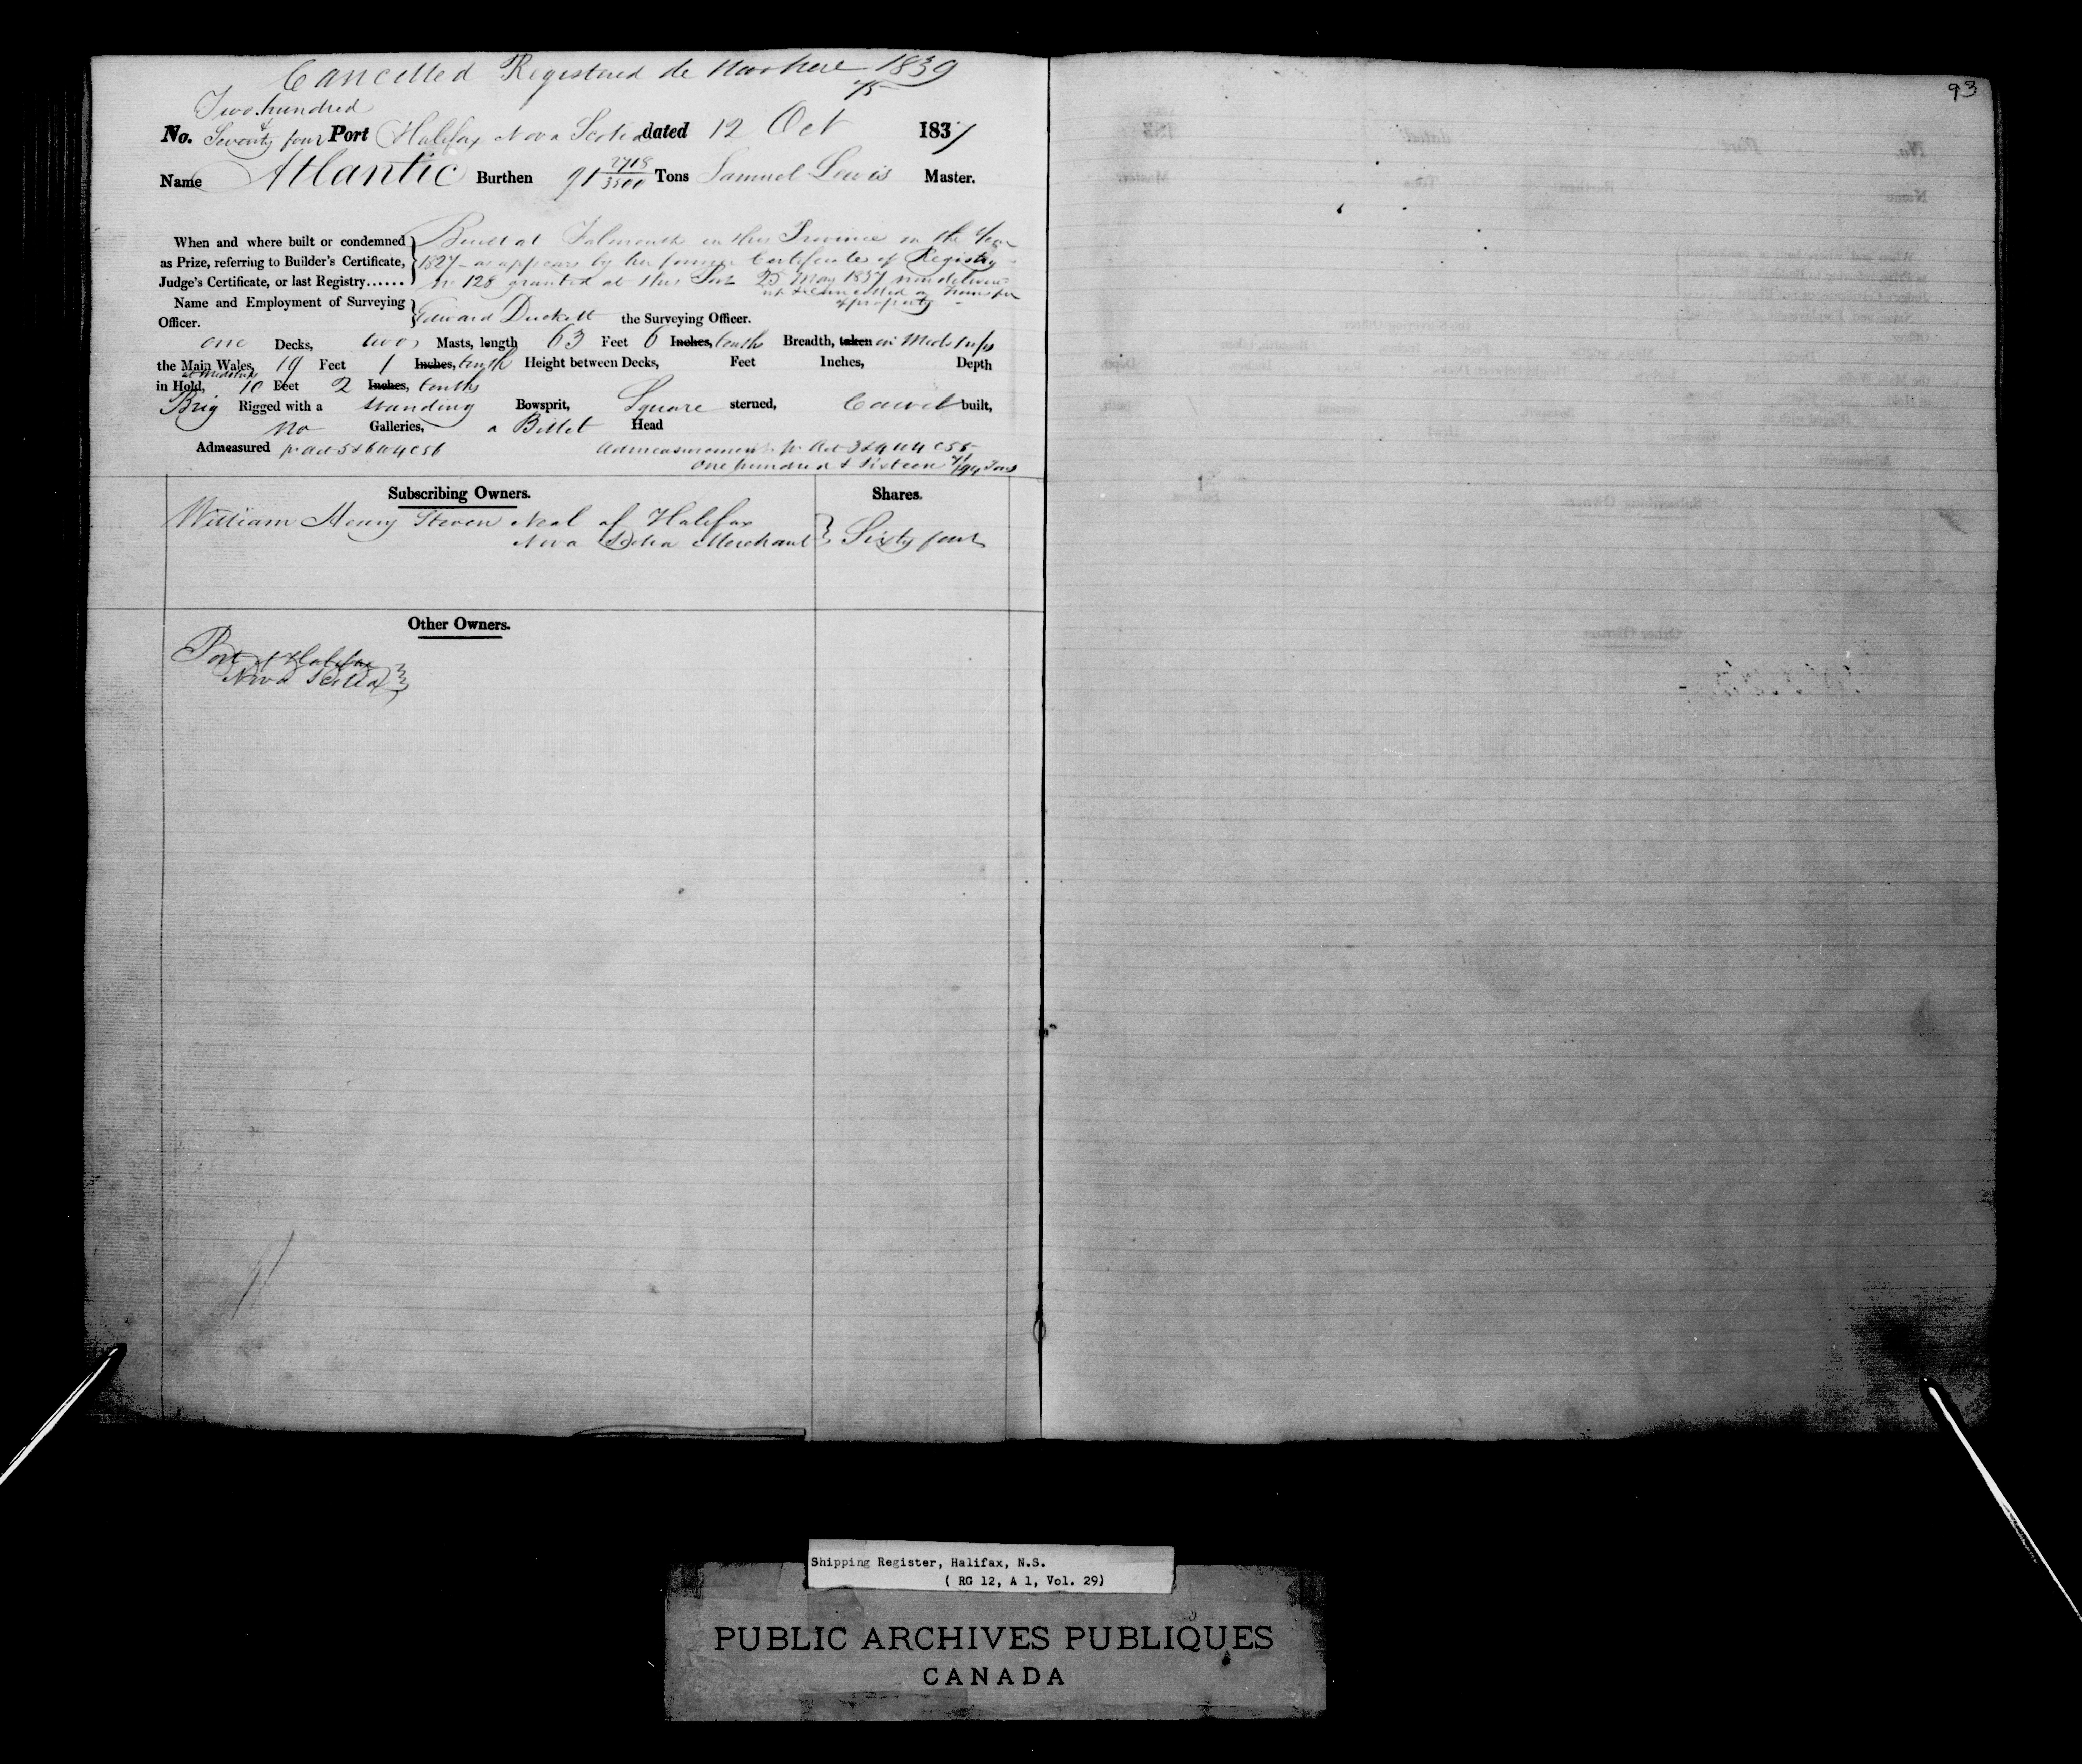 Cancelled Registered de Novo here 1839
Two hundred
No. Seventy & four Port Halifax Nova Scotia dated 12 Oct 1837
Name Atlantic Burthen 91 2718/3500 Tons Samuel Lewis Master.
When and where built or condemned Built at Falmouth in this Province in the Year
as Prize, referring to Builder's Certificate, 1827 as appears by her former Certificate of Registry
Judge's Certificate, or last Registry...... No 128 granted at this Port 25 May 1837 now delivered
up & cancelled on transfer
Name and Employment of Surveying
of property
Officer. Edward Duckett the Surveying Officer.
one Decks, two Masts, length 63 Feet 6 Inches, tenths Breadth, taken in Midships
the Main Wales, 19 Feet 1 Inches, tenth Height between Decks, Feet Inches, Depth
at Midships
in Hold, 10 Feet 2 Inches, tenths
Brig Rigged with a standing Bowsprit, Square sterned, Carvel built,
no Galleries, a Billet Head
Admeasured pr Act 5 & 6 W 4 C 56 Admeasurement pr Act 3 & 4 W 4 C 55
One hundred & sixteen /94 Tons
Subscribing Owners. Shares.
William Henry Steven Neal of Halifax
Nova Scotia Merchant } Sixty four
Other Owners.
Port of Halifax
Nova Scotia }
93
Shipping Register, Halifax, N.S.
( RG 12, A 1, Vol. 29)
PUBLIC ARCHIVES PUBLIQUES
CANADA